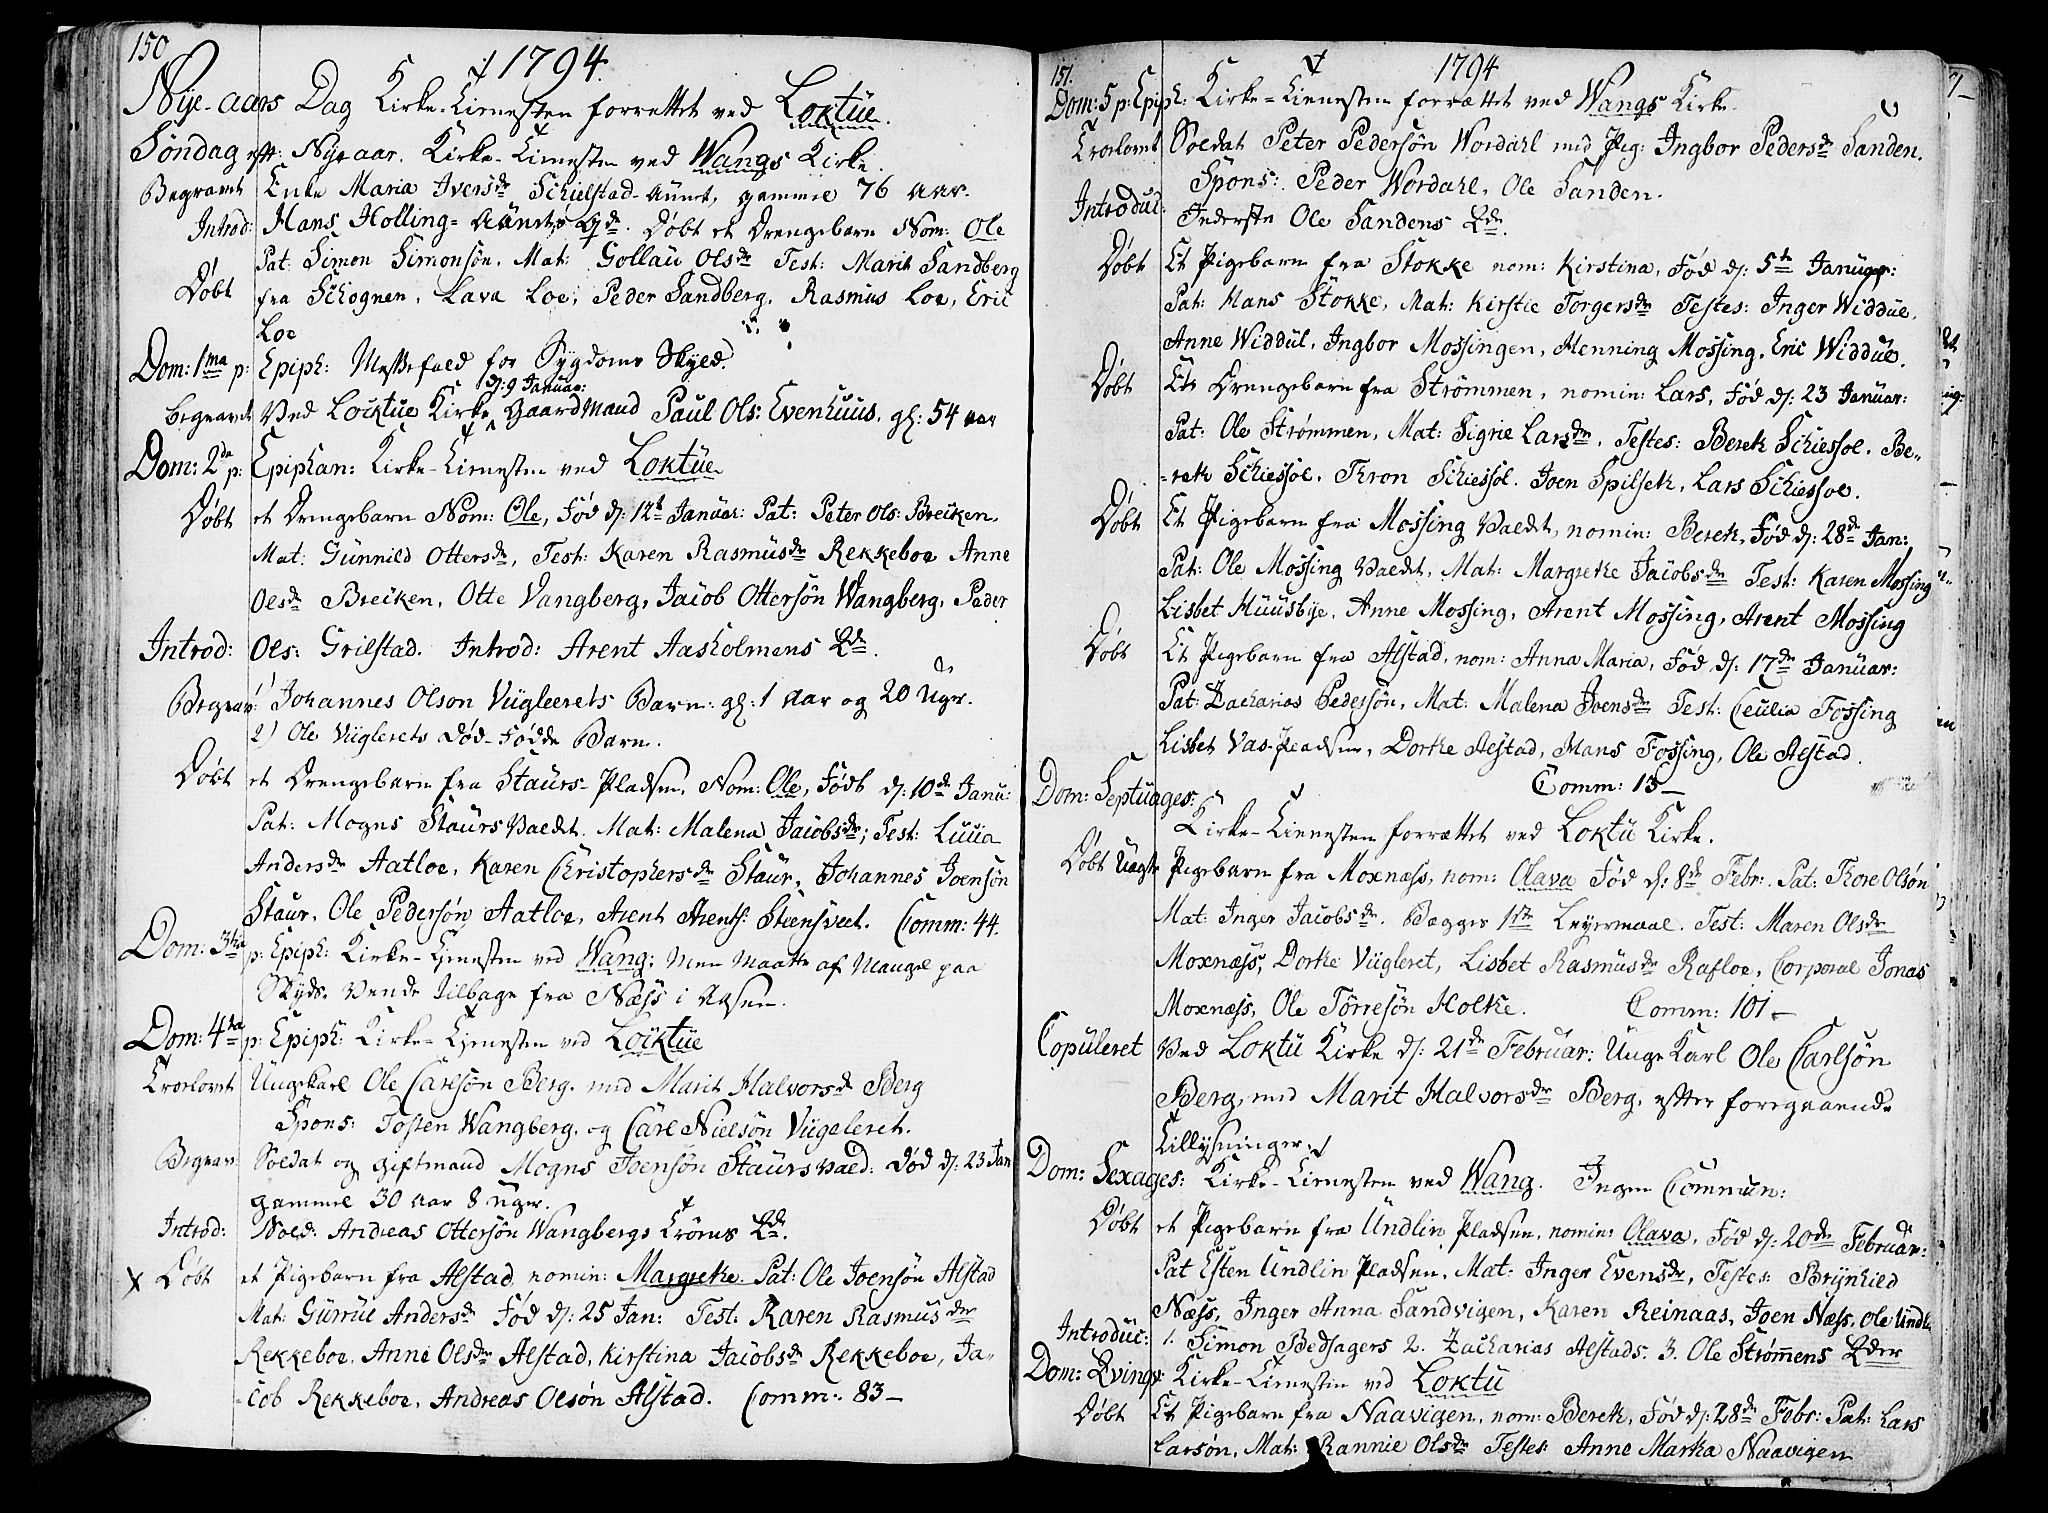 150
1794.
Nye-aars Dag Kirke-Tienesten forrettet ved Loktüe.
Søndag eft: Nyeaar. Kirke-Tienesten ved Wangs Kirke.
Begravet Enke Maria Iversdr Schielstad-Aünet, gammel 76 aar.
Introd: Hans Holling-Aünets Qde. Døbt et Drengebarn Nom: Ole
Pat: Simon Simonsön. Mat: Gollau Olsdr Test: Marit Sandberg
Døbt fra Schognen, Lava Loe, Peder Sandberg, Rasmus Loe, Eric
Loe
Dom: 1ma p: Epiph: Messefald for Sygdoms Skyld.
d: 9 Januar:
begravet Ved Locktüe Kirke Gaardmand Paul Ols: Evenhuus, gl: 54 aar
Dom: 2da p: Epiphan: Kirke-Tienesten ved Loktüe
Døbt et Drengebarn Nom: Ole, Fød d: 12t Januar: Pat: Peter Ols: Breiken.
Mat: Günnild Ottersdr, Test: Karen Rasmusdr Rekkeboe Anne
Olsdr Breiken, Otte Vangberg, Jacob Ottersön Wangberg, Peder
Introd: Ols: Grilstad. Introd: Arent Aasholmens Qde.
Begrav: 1) Johannes Olson Vügleerets Barn: gl: 1 Aar og 20 Uger.
2) Ole Vüglerets Død-Fødde Barn.
Døbt et Drengebarn fra Staurs-Pladsen, Nom: Ole, Født d: 10de Janu:
Pat: Mogns Staursvaldt. Mat: Malena Jacobsdr; Test: Luüa
Andersdr Aatloe, Karen Christophersdr Staur, Johannes Joensön
Staur, Ole Pedersön Aatloe, Arent Arents: Steensveet. Comm: 44.
Dom: 3tia p: Epiph: Kirke-Tienesten ved Wang; Men Maatte af Mangel paa
Skyds. Vende tilbage fra Næss i Aasen.
Dom: 4ta p: Epiph: Kirke-Tienesten ved Locktüe
Trorlovet Ungekarl Ole Carlsön Berg, med Marit Halvorsdr Berg
Spons: Tosten Wangberg, og Carl Nielsön Vügeleret.
Begrav: Soldat og Giftmand Mogns Joensön Staursvald: Død d: 23 Jan
gammel 30 aar 8 Uger.
Introd: Nold: Andreas Ottersön Wangbergs Qde.
Døbt et Pigebarn fra Alstad nomin: Margrethe. Pat: Ole Joensön Alstad
Mat: Gürrüe Andersdr Fød d: 25 Jan: Test: Karen Rasmusdr
Rekkeboe, Anne Olsdr Alstad, Kirstina Jacobsdr Rekkeboe, Ja-
-cob Rekkeboe, Andreas Olsön Alstad. Comm: 83 –
151.
1794
Dom: 5 p: Epiph: Kirke-Tienesten forrættet ved Wangs Kirke.
Trorlovet Soldat Peter Pedersön Wordahl med Pig: Ingbor Pedersdr Sanden.
Spons: Peder Wordahl, Ole Sanden.
Introduc: Inderste Ole Sandens Qde.
Døbt Et Pigebarn fra Stokke nom: Kirstina, Fød d: 5te Januar:
Pat: Hans Stokke, Mat: Kirstie Torgersdr Testes: Inger Widdüe,
Anne Widdül, Ingbor Mossingen, Henning Mossing, Eric Widdül.
Døbt Ett Drengebarn fra Strömmen, nomin: Lars, Fød d: 23 Januar:
Pat: Ole Strømmen, Mat: Sigrie Larsdr, Testes: Berek Schiessol, Be-
-rek Schiessol, Thron Schiessol. Joen Spilsek, Lars Schiessol.
Døbt Et Pigebarn fra Mossing Valdt, nomin: Berek, Fød d: 28de Jan:
Pat: Ole Mossing Valdt, Mat: Margrethe Jacobsdr Test: Karen Mossing
Lisbet Huüsbye, Anne Mossing, Arent Mossing, Arent Mossing
Døbt Et Pigebarn fra Alstad, nom: Anna Maria, Fød d: 17de Januar:
Pat: Zacharias Pedersön, Mat: Malena Joensdr Test: Cecilia Fossing
Lisbet Vas-Pladsen, Dorthe Alstad, Hans Fossing, Ole Alstad.
Comm: 13 –
Dom: Septuages:
Kirke-Tienesten forrættet ved Loktü Kirke.
Døbt Uægte Pigebarn fra Moxnæss, nom: Olava Fød d: 8de Febr. Pat: Thore Olsön
Mat: Inger Jacobsdr. Begges 1ste Leyermaal. Test: Maren Olsdr
Moxnæss, Dorthe Vügleret, Lisbet Rasmusdr Rafloe, Corporal Jonas
Moxnæss, Ole Törresön Holthe. Comm: 101 –
Copuleret Ved Loktü Kirke d: 21de Februar: Unge Karl Ole Carlsön
Berg, med Marit Halvorsdr Berg, efter foregaaende
Tillysninger.
Dom: Sexages: Kirke-Tienesten ved Wang. Ingen Commun:
Døbt et Pigebarn fra Undlin Pladsen, nomin: Olava, Fød d: 20de Februar:
Pat Esten Undlin Pladsen. Mat: Inger Evensdr, Testes: Brynhild
Næss, Inger Anna Sandvigen, Karen Reinaas, Joen Næss, Ole Undl.
Introduc: 1. Simon Bedsagers 2. Zacharias Alstads. 3. Ole Strømens Qder
Dom: Qvinqv: Kirke-Tienesten ved Loktü
Døbt Et Pigebarn fra Naavigen, nom: Berek, Fød d: 28de Febr: Pat: Lars
Larsön, Mat: Rannie Olsdr Testes: Anne Martha Naavigen